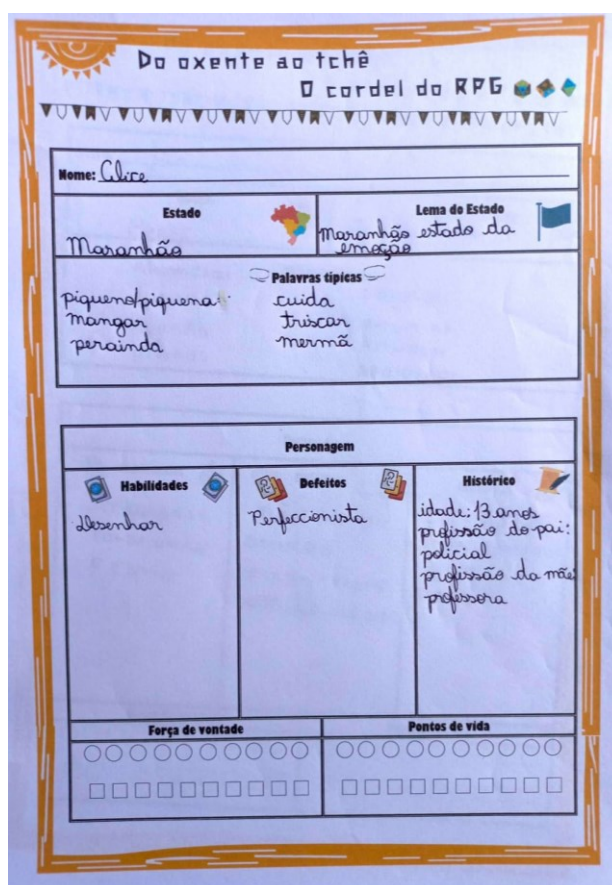 Do oxente ao tchê
O cordel do RPG
Nome: Alice
Estado
Maranhão
Lema do Estado
Maranhão estado da
emoção
Palavras típicas
piqueno/piquena
mangar
perainda
cuida
triscar
mermã
Personagem
Habilidades
Desenhar
Defeitos
Perfeccionista
Histórico
idade: 13 anos
profissão do pai:
policial
profissão da mãe:
professora
Força de vontade
Pontos de vida